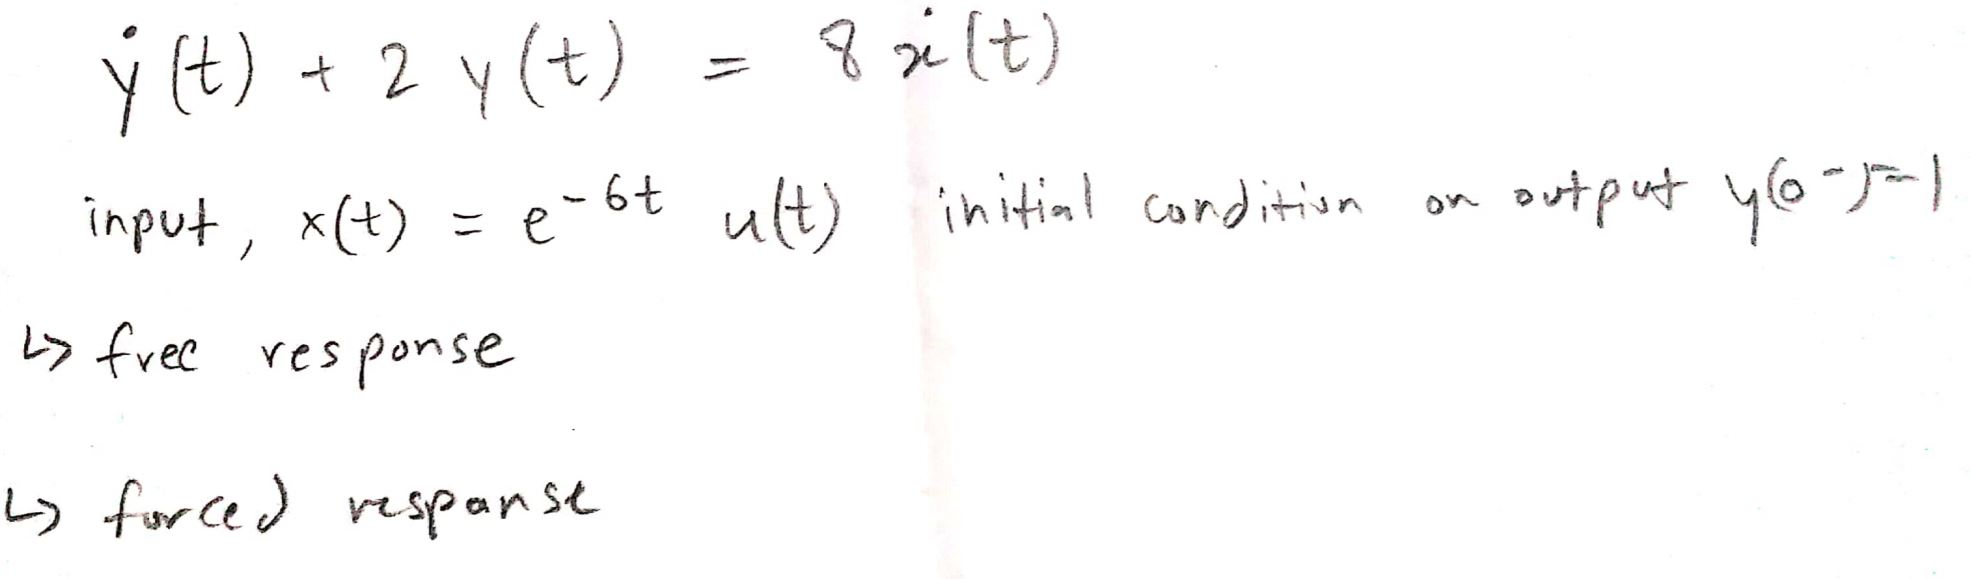 ẏ(t) + 2 y(t) = 8 ẋ(t)
input, x(t) = e^{-6t} u(t) initial condition on output y(0^-)=1
↳ free response
↳ forced response